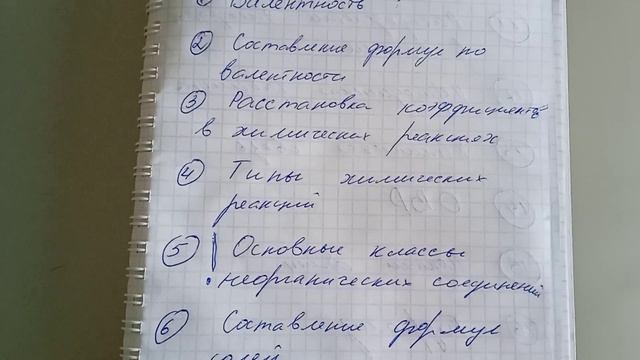 ① Валентность
② Составление формул по
валентности
③ Расстановка коэффициентов
в химических реакциях
④ Типы химических
реакций
⑤ ! Основные классы
неорганических соединений
⑥ Составление формул
солей